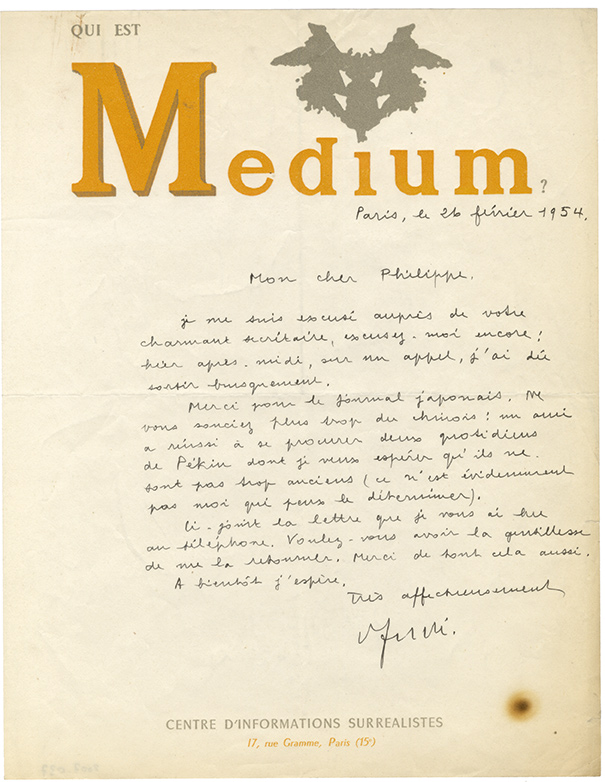 QUI EST
Medium?
Paris, le 26 février 1954.
Mon cher Philippe,
je me suis excusé auprès de votre
charmant secrétaire, excusez-moi encore :
hier après-midi, sur un appel, j'ai dû
sortir brusquement.
Merci pour le journal japonais. Ne
vous souciez plus trop du chinois : un ami
a réussi à se procurer deux quotidiens
de Pékin dont je veux espérer qu'ils ne
sont pas trop anciens (ce n'est évidemment
pas moi qui peux le déterminer).
Ci-joint la lettre que je vous ai lue
au téléphone. Voulez-vous avoir la gentillesse
de me la retourner. Merci de tout cela aussi.
A bientôt j'espère.
Très affectueusement
CENTRE D'INFORMATIONS SURREALISTES
17, rue Gramme, Paris (15e)